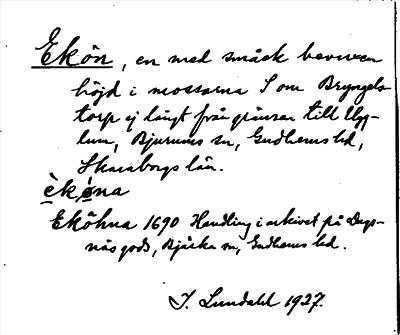 Ekön, en med småsk bevuxen
höjd i mossarna S om Bryngels-
torp ej långt från gränsen till Ug-
lum, Bjurums sn, Gudhems hd,
Skaraborgs län.
èkø̀na
Eköhna 1690 Handling i arkivet på Dags-
näs gods, Bjärka sn, Gudhems hd.
I. Lundahl 1927.